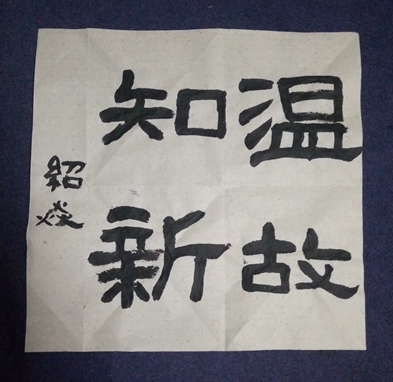 温故
知新
紹焱